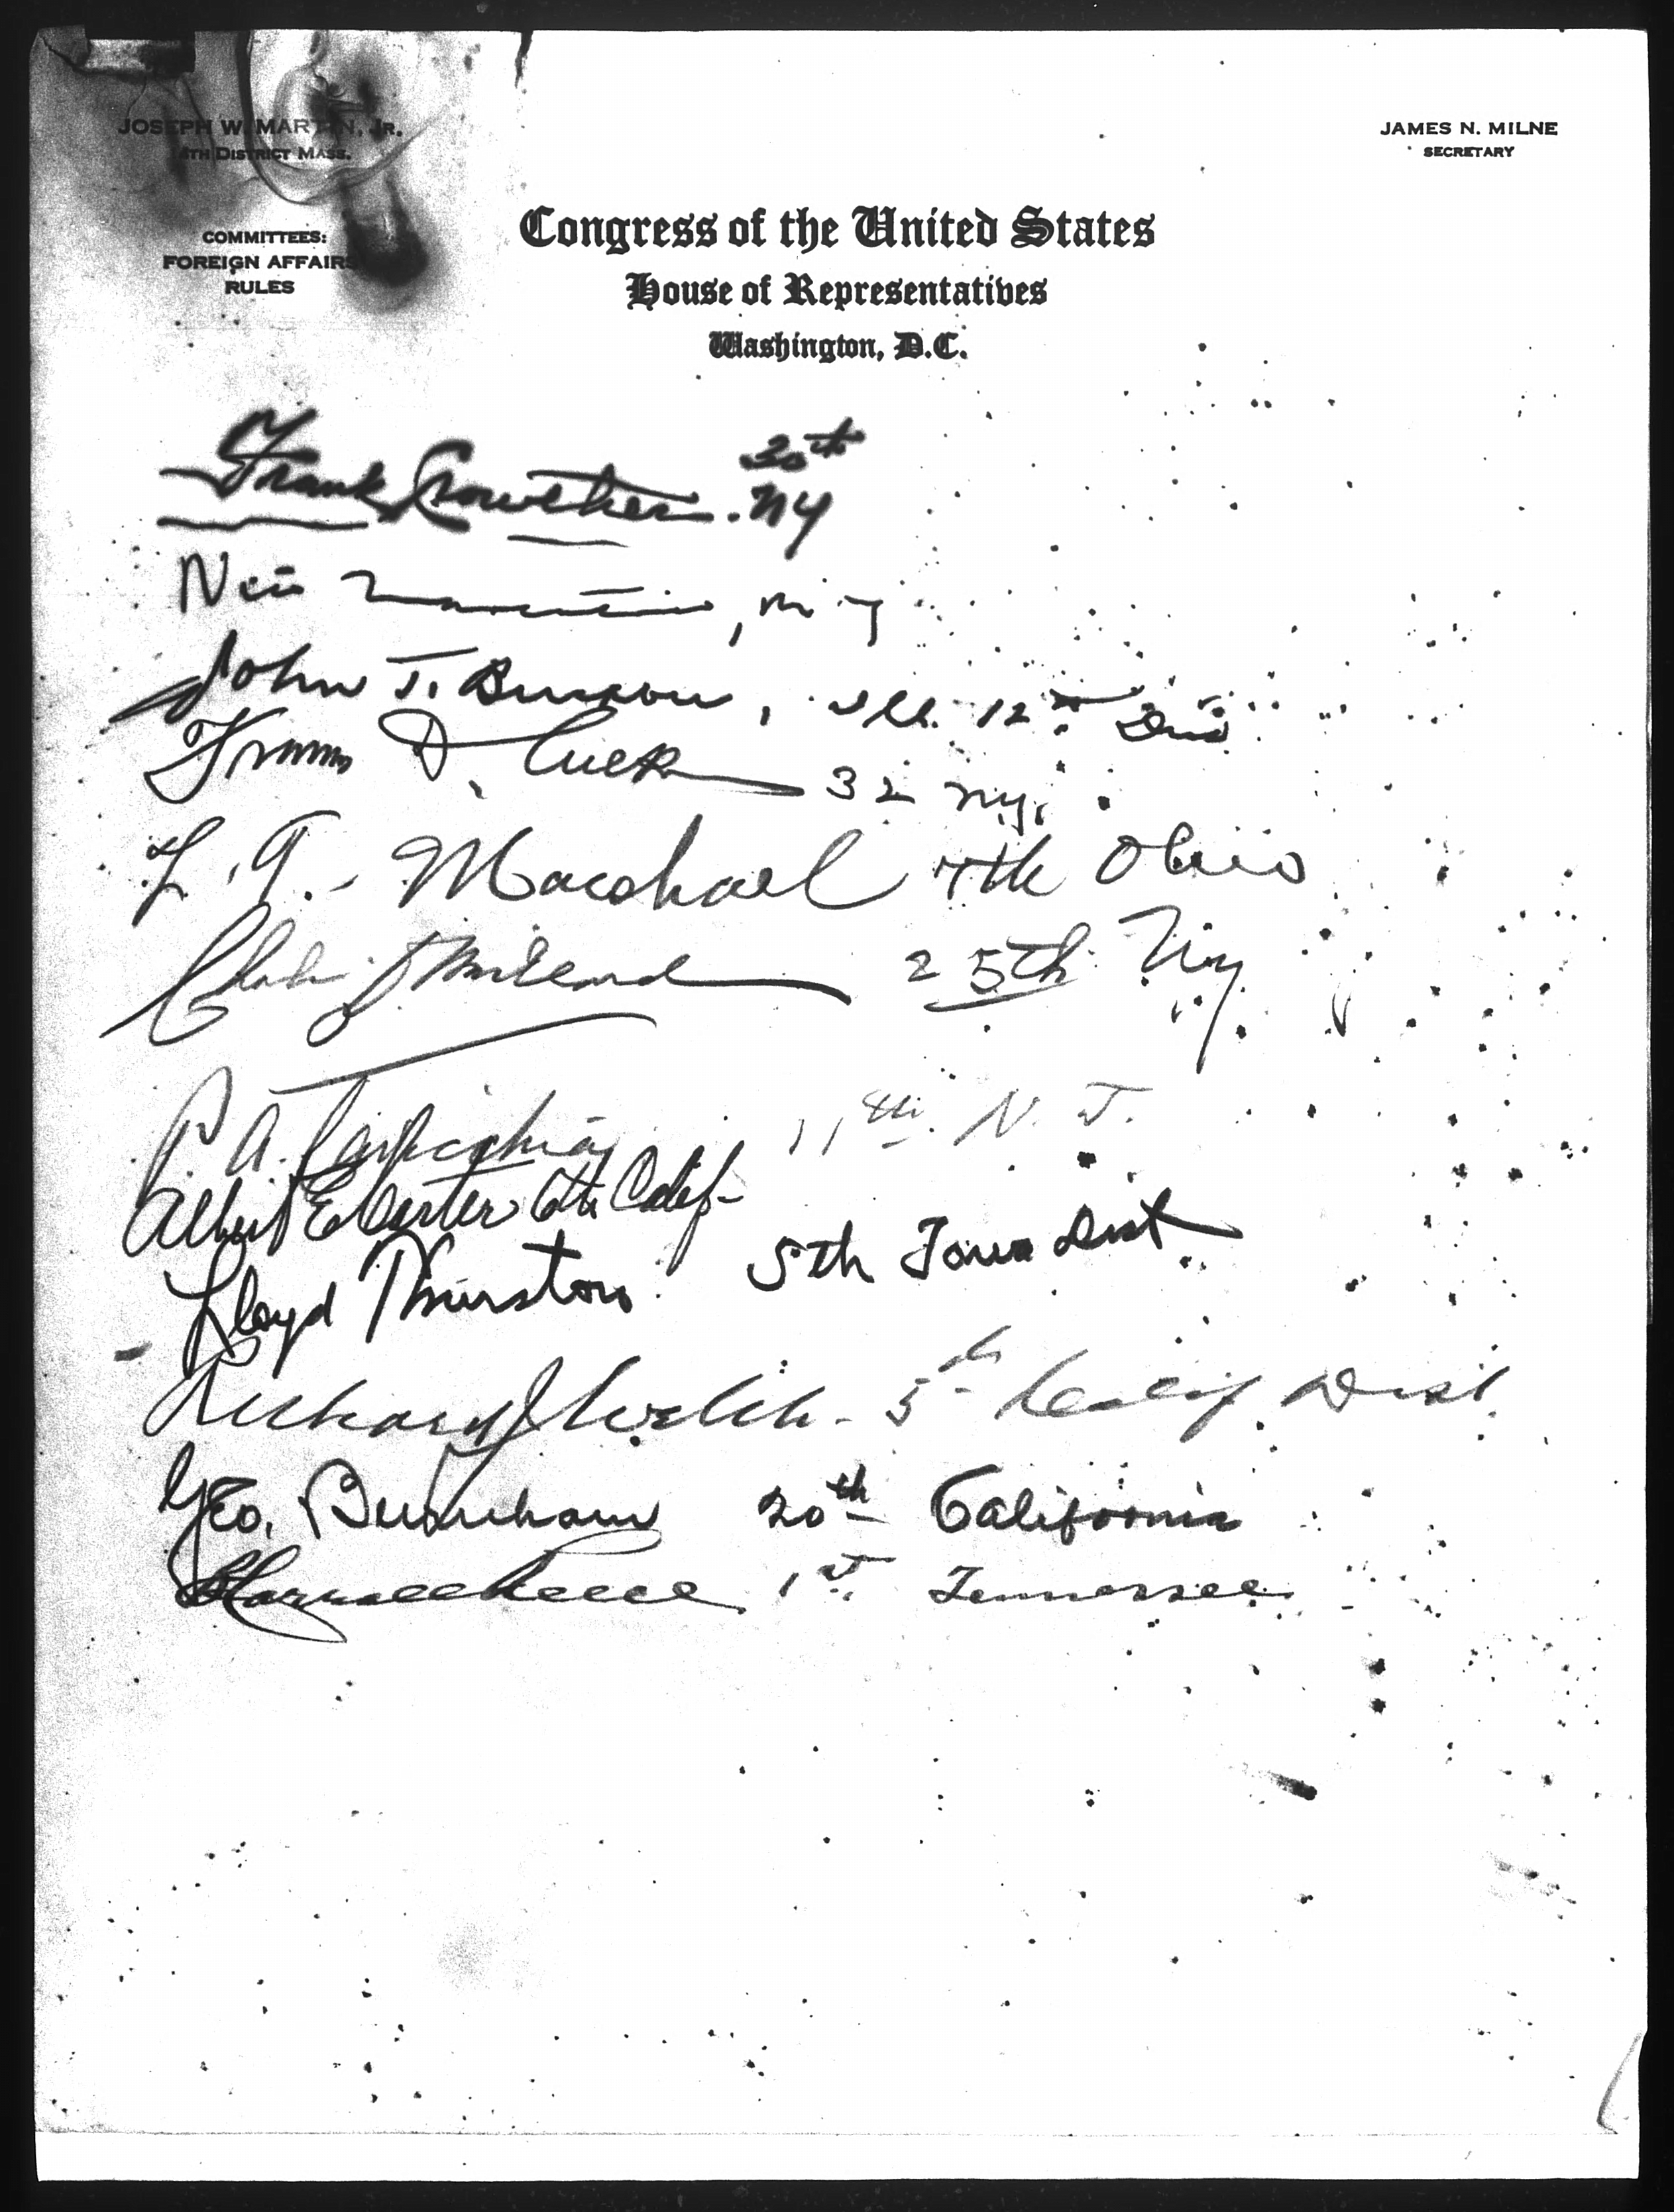 JOSEPH W. MARTIN, JR.
14TH DISTRICT MASS.
JAMES N. MILNE
SECRETARY
COMMITTEES:
FOREIGN AFFAIRS
RULES
Congress of the United States
House of Representatives
Washington, D.C.
Frank Crowther. 30th NY
John T. Buckbee, Ill. 12th Dis
Francis D. Culkin 32 N.Y.
L. T. Marshall 7th Ohio
25th N.Y.
P. A. Cavicchia 11th N. J.
Albert E Carter 6th Calif
Lloyd Thurston 5th Iowa Dist
Richard J Welch - 5th Calif Dist.
Geo. Burnham 20th California
B Carroll Reece 1st. Tennessee